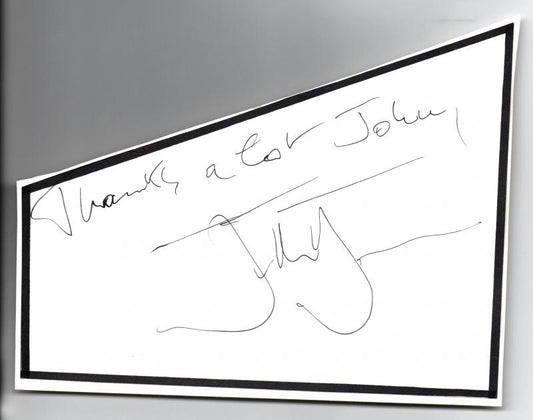 Thanks a lot John,